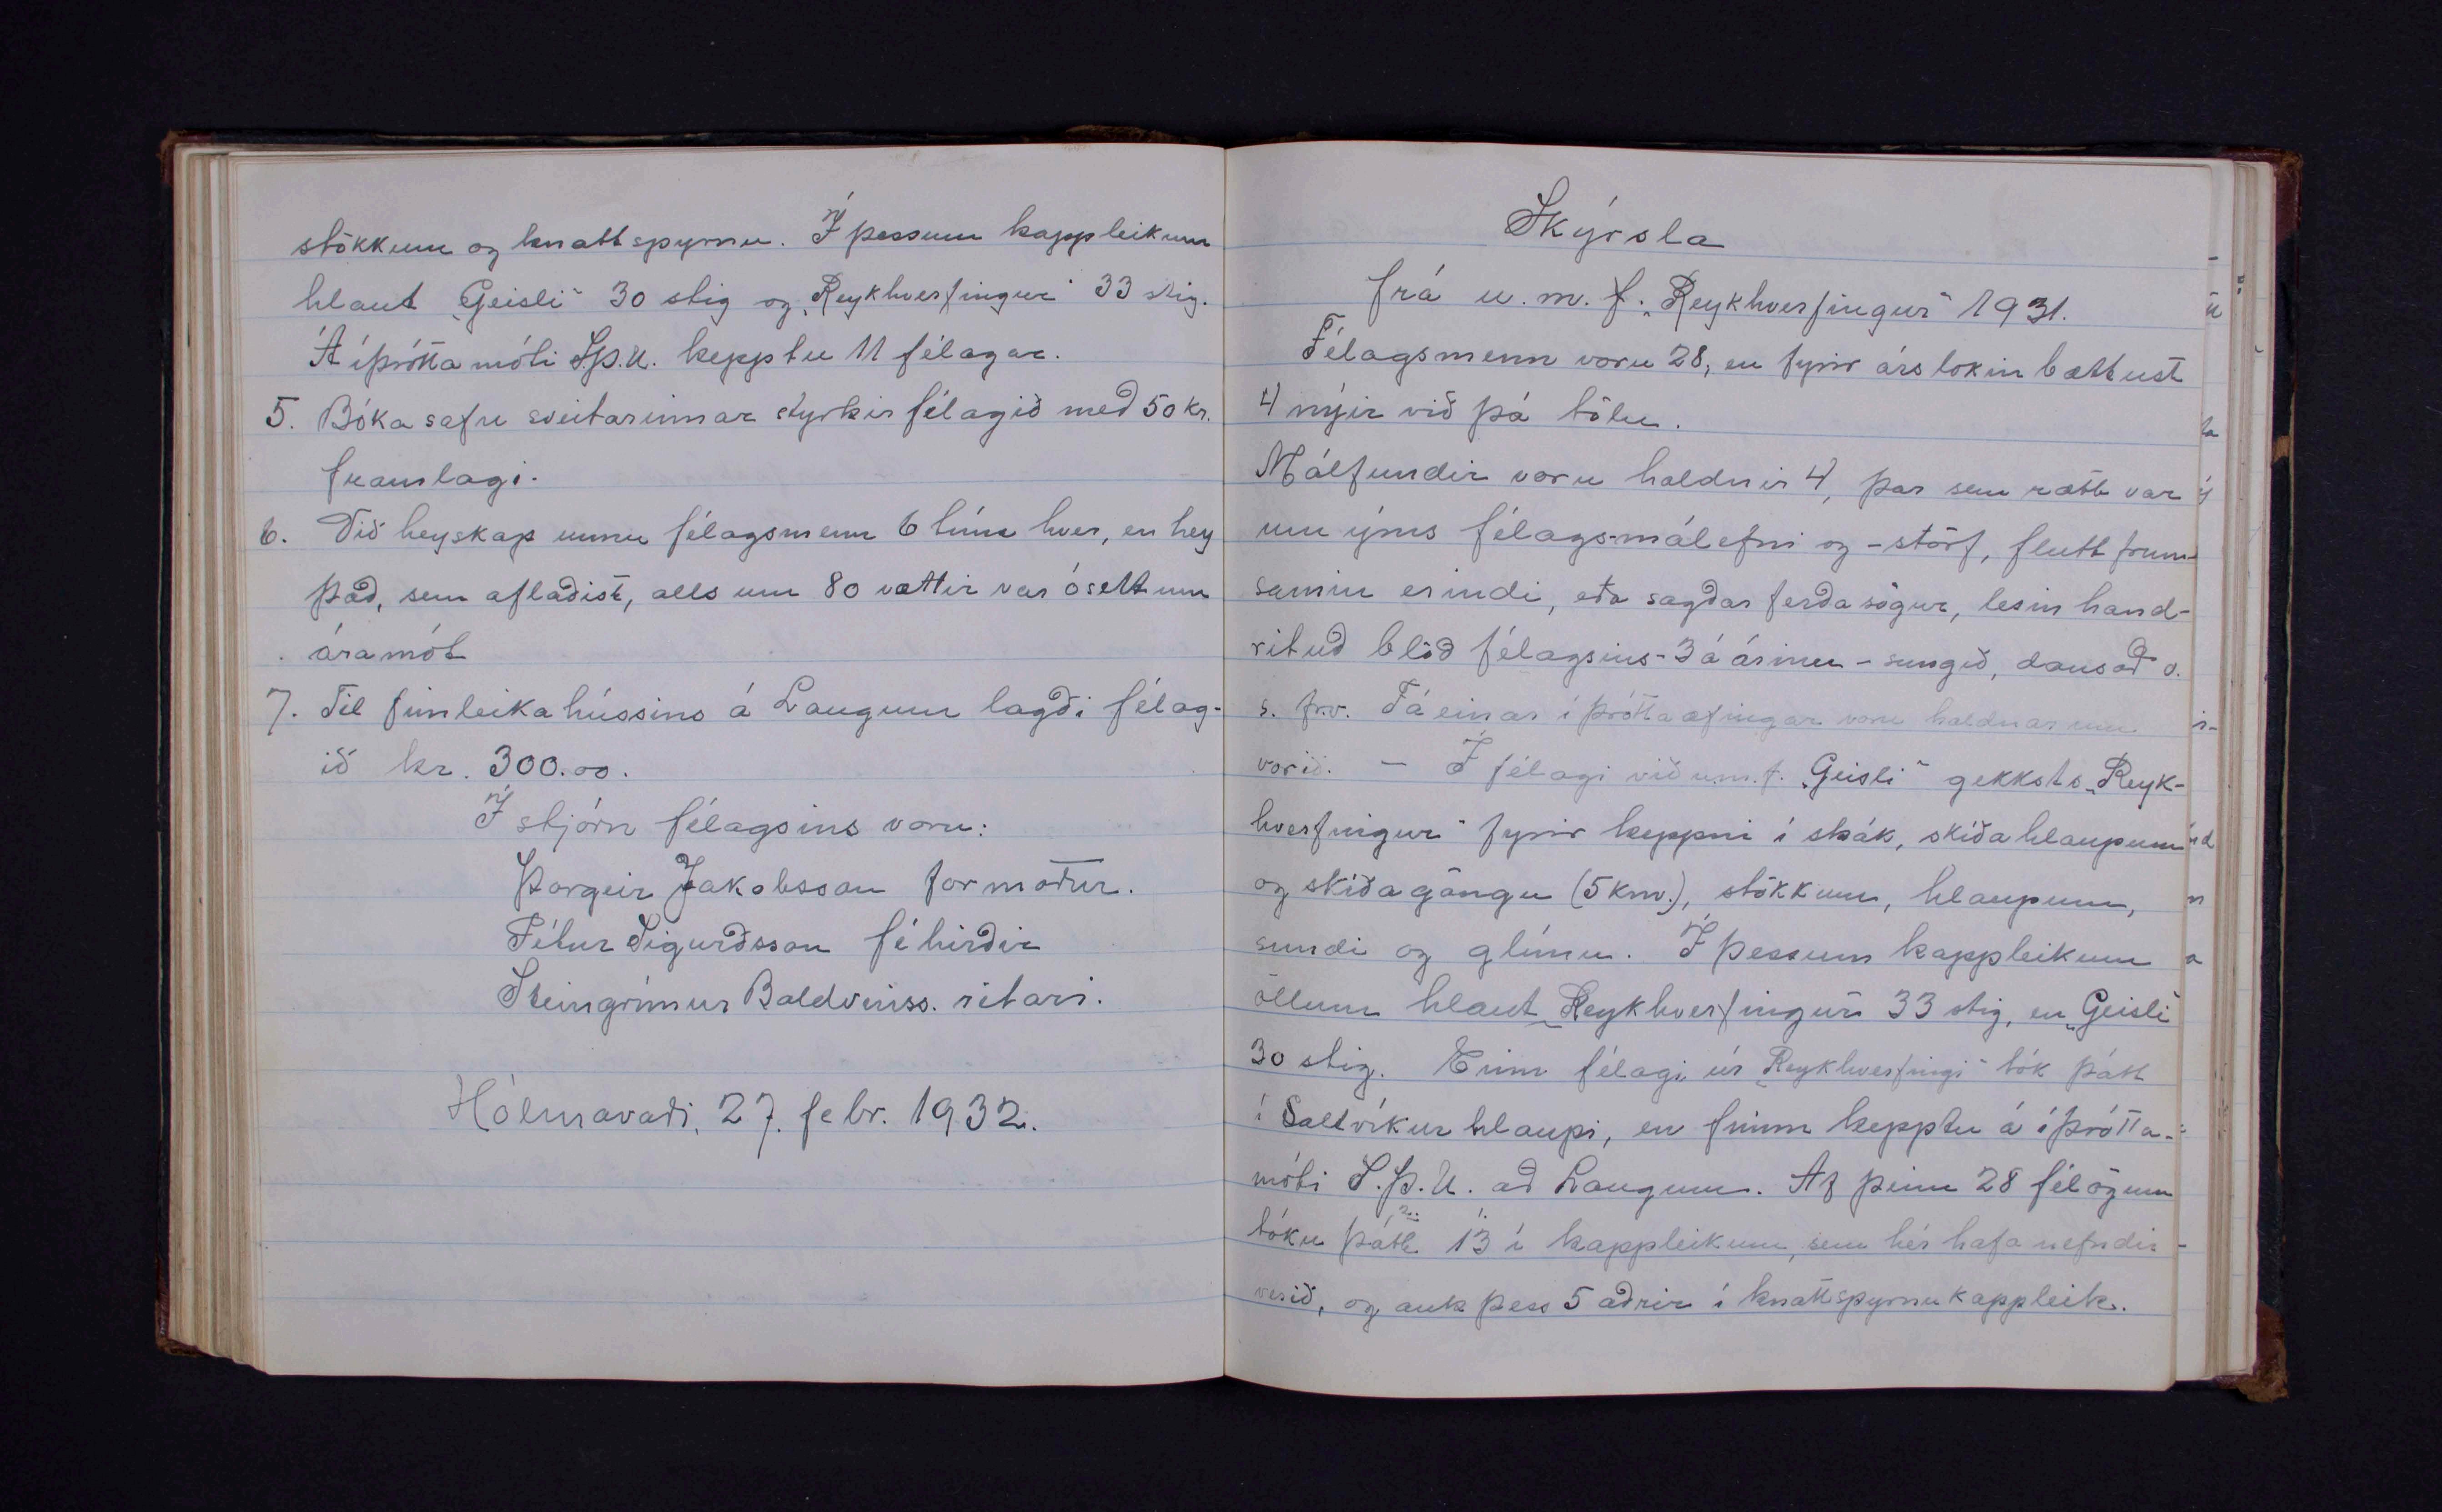 stökkum og knattspyrnu. Í þessum kappleikum
hlaut „Geisli“ 30 stig og „Reykhverfingur“ 33 stig.
Á íþróttamóti S.Þ.U. kepptu 11 félagar.
5. Bókasafn sveitarinnar styrkir félagið með 50 kr.
framlagi.
6. Við heyskap unnu félagsmenn 6 tíma hver, en hey
það, sem aflaðist, alls um 80 vættir var óselt um
áramót
7. Til fimleikahússins á Laugum lagði félag-
ið kr. 300.00.
Í stjórn félagsins voru:
Þorgeir Jakobsson formaður.
Pétur Sigurðsson féhirðir
Steingrímur Baldvinss. ritari.
Hólmavaði, 27. febr. 1932.
Skýrsla
frá u. m. f. „Reykhverfingur“ 1931.
Félagsmenn voru 28, en fyrir árslokin bættust
4 nýir við þá tölu.
Málfundir voru haldnir 4, þar sem rætt var
um ýms félagsmálefni og -störf, flutt frum-
samin erindi, eða sagðar ferðasögur, lesin hand-
rituð blöð félagsins - 3 á árinu - sungið, dansað o.
s. frv. Fáeinar íþróttaæfingar voru haldnar um
vorið. - Í félagi við u.m.f. „Geisli“ gekkst „Reyk-
hverfingur“ fyrir keppni í skák, skíðahlaupum
og skíðagöngu (5 km.), stökkum, hlaupum,
sundi og glímu. Í þessum kappleikum
öllum hlaut „Reykhverfingur“ 33 stig, en „Geisli“
30 stig. Einn félagi úr „Reykhverfingi“ tók þátt
í Saltvíkurhlaupi, en fimm kepptu á íþrótta-
móti S.Þ.U. að Laugum. Af þeim 28 félögum
tóku þátt 13 í kappleikum, sem hér hafa nefndir
verið, og auk þess 5 aðrir í knattspyrnukappleik.